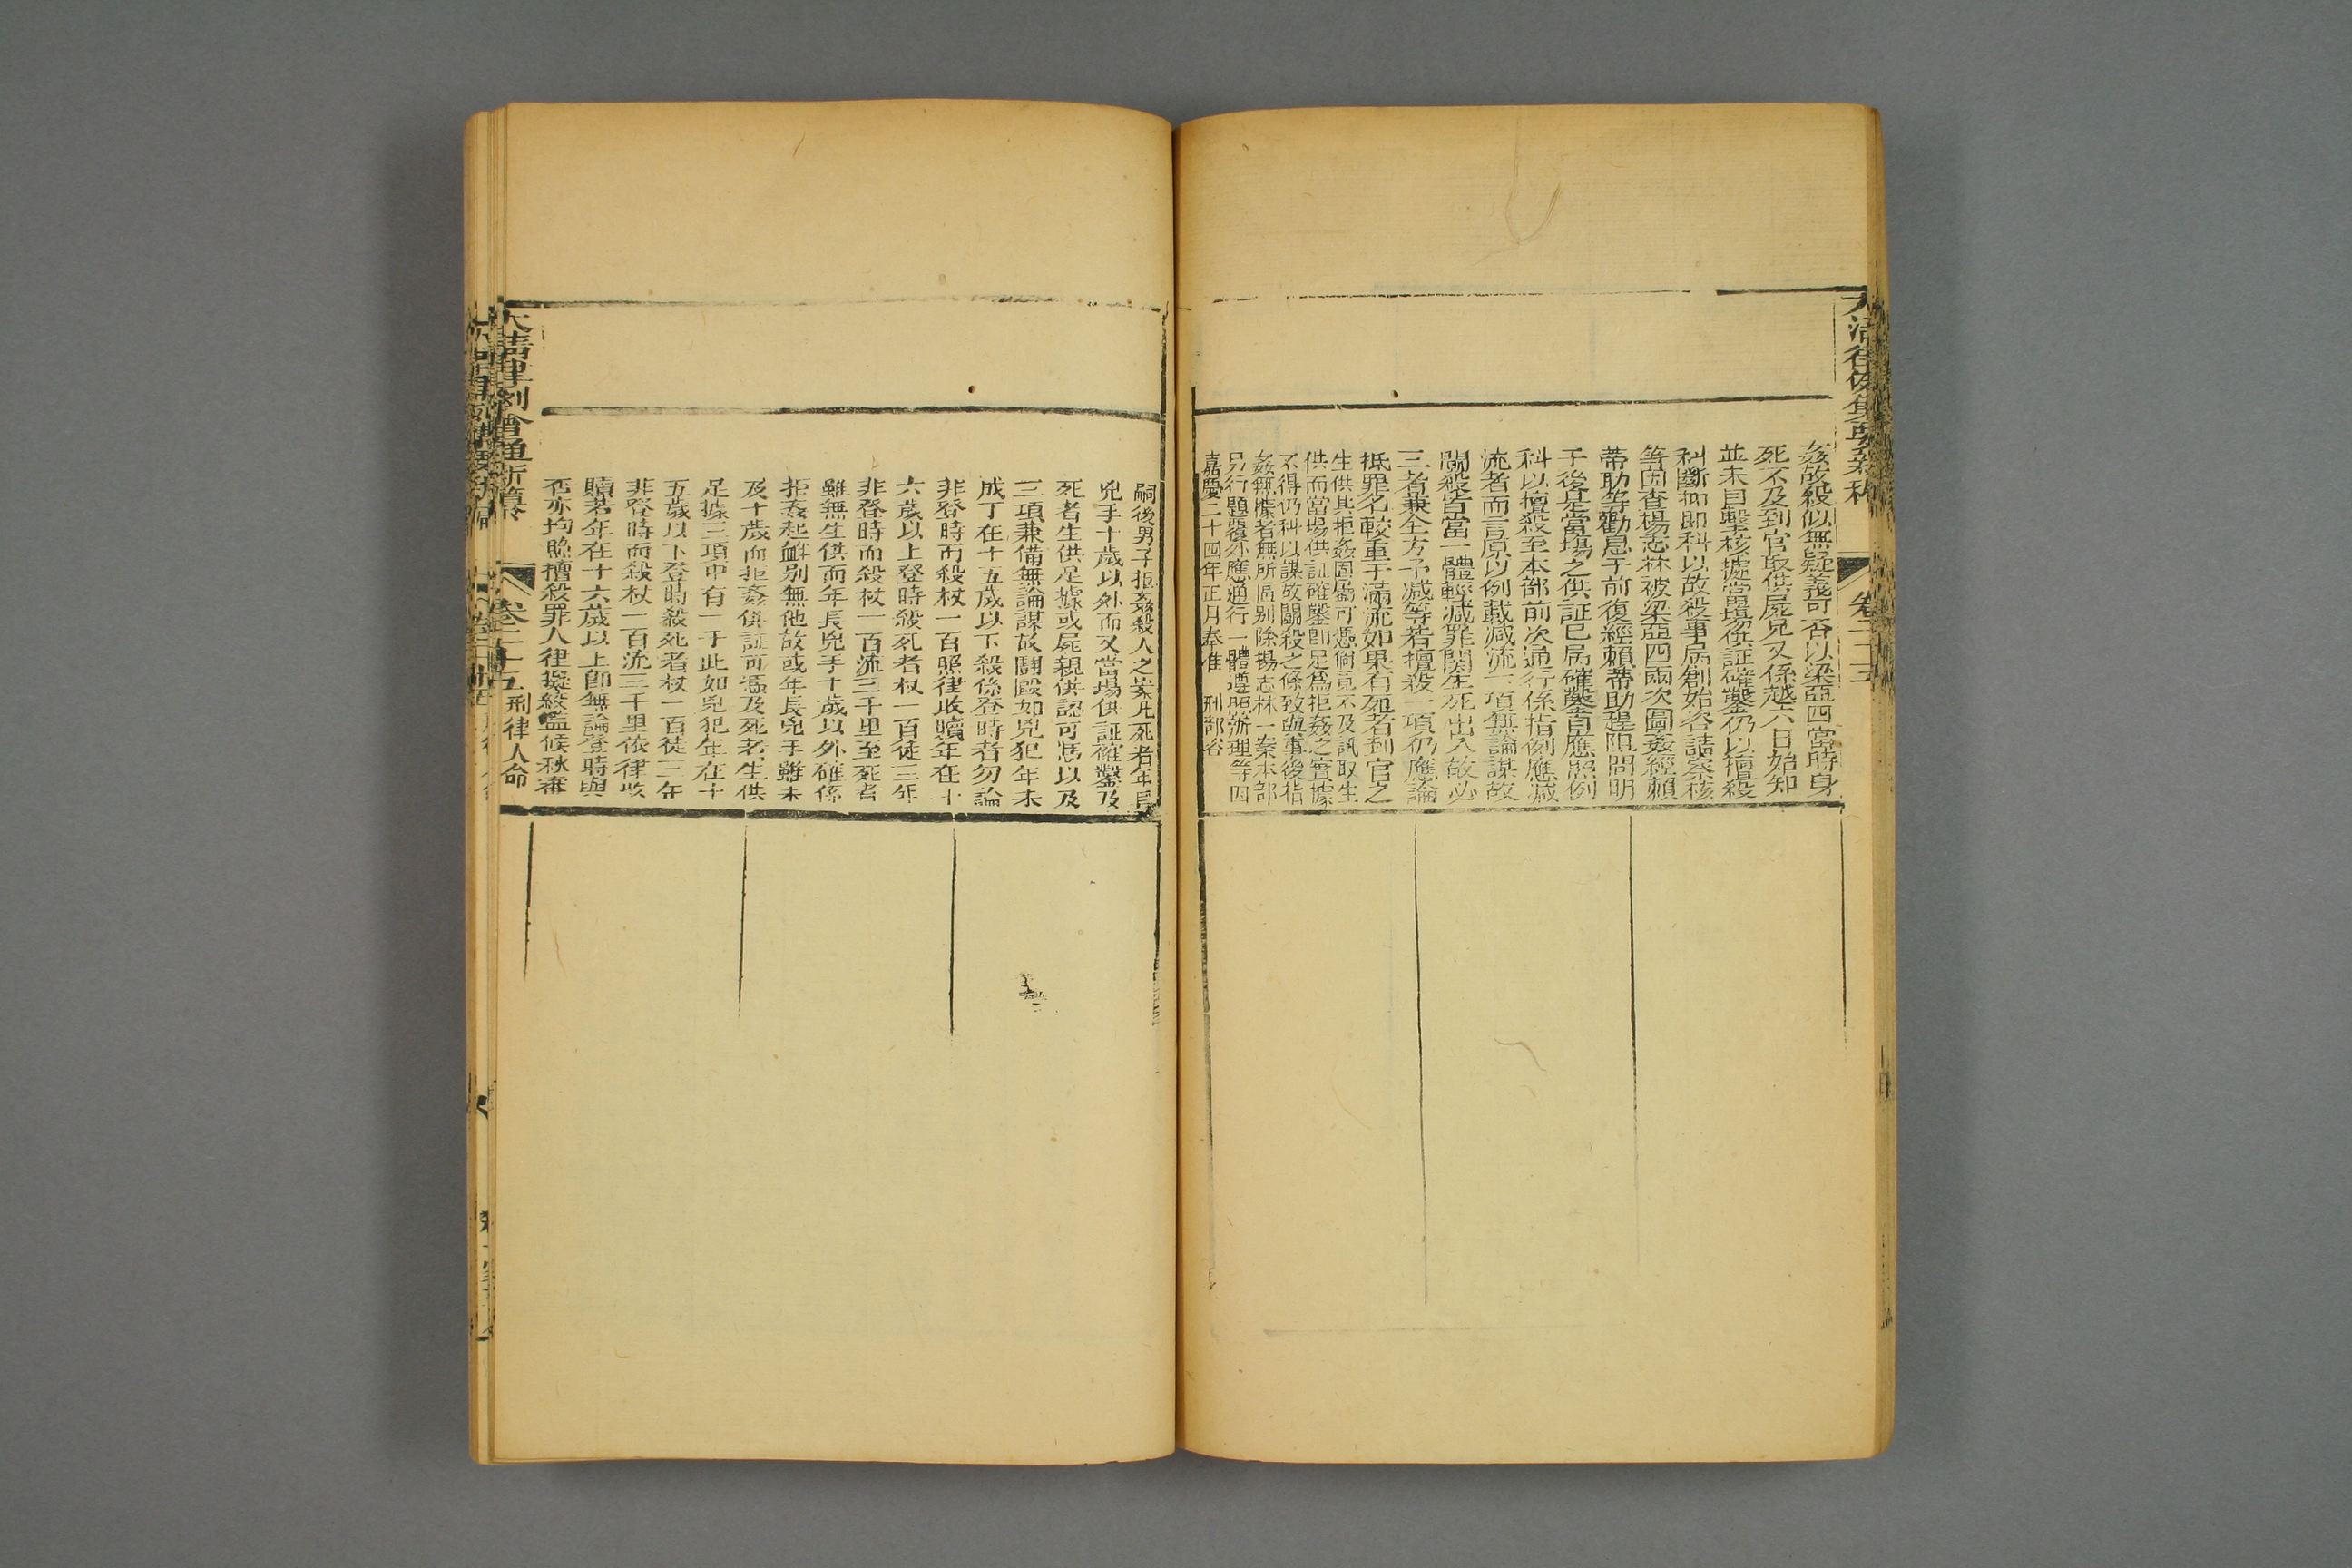 姦故殺似無疑義可否以梁亞四當時身
死不及到官取供屍兄又係越六日始知
並未目擊核據當塲供証確鑿仍以擅殺
科斷抑即科以故殺事屬創始咨請察核
等因查楊志林被梁亞四兩次圖姦經賴
蒂助等勸息于前復經賴蒂助趕阻問明
于後是當塲之供証已屬確鑿自應照例
科以擅殺至本部前次通行係指例應減
流者而言原以例載減流一項無論謀故
鬬殺皆當一體輕減罪関生死出入故必
三者兼全方予減等若擅殺一項仍應論
抵罪名較重于滿流如果有死者到官之
生供其拒姦固屬可憑倘竟不及訊取生
供而當塲供証確鑿即足爲拒姦之實據
不得仍科以謀故鬬殺之條致與事後指
姦無據者無所區别除楊志林一案本部
另行題覆外應通行一體遵照辦理等因
嘉慶二十四年正月奉准 刑部咨
卷二十五
嗣後男子拒姦殺人之案凡死者年長
兇手十歲以外而又當塲供証確鑿及
死者生供足據或屍親供認可慿以及
三項兼備無論謀故鬬毆如兇犯年未
成丁在十五歲以下殺係登時者勿論
非登時而殺杖一百照律收贖年在十
六歲以上登時殺死者杖一百徒三年
非登時而殺杖一百流三千里至死者
雖無生供而年長兇手十歲以外確係
拒姦起衅别無他故或年長兇手雖未
及十歲而拒姦供証可慿及死者生供
足據三項中有一于此如兇犯年在十
五歲以下登時殺死者杖一百徒三年
非登時而殺杖一百流三千里依律收
贖若年在十六歲以上即無論登時與
否亦均照擅殺罪人律擬絞監候秋審
大清律例會通新纂 卷二十五 刑律人命